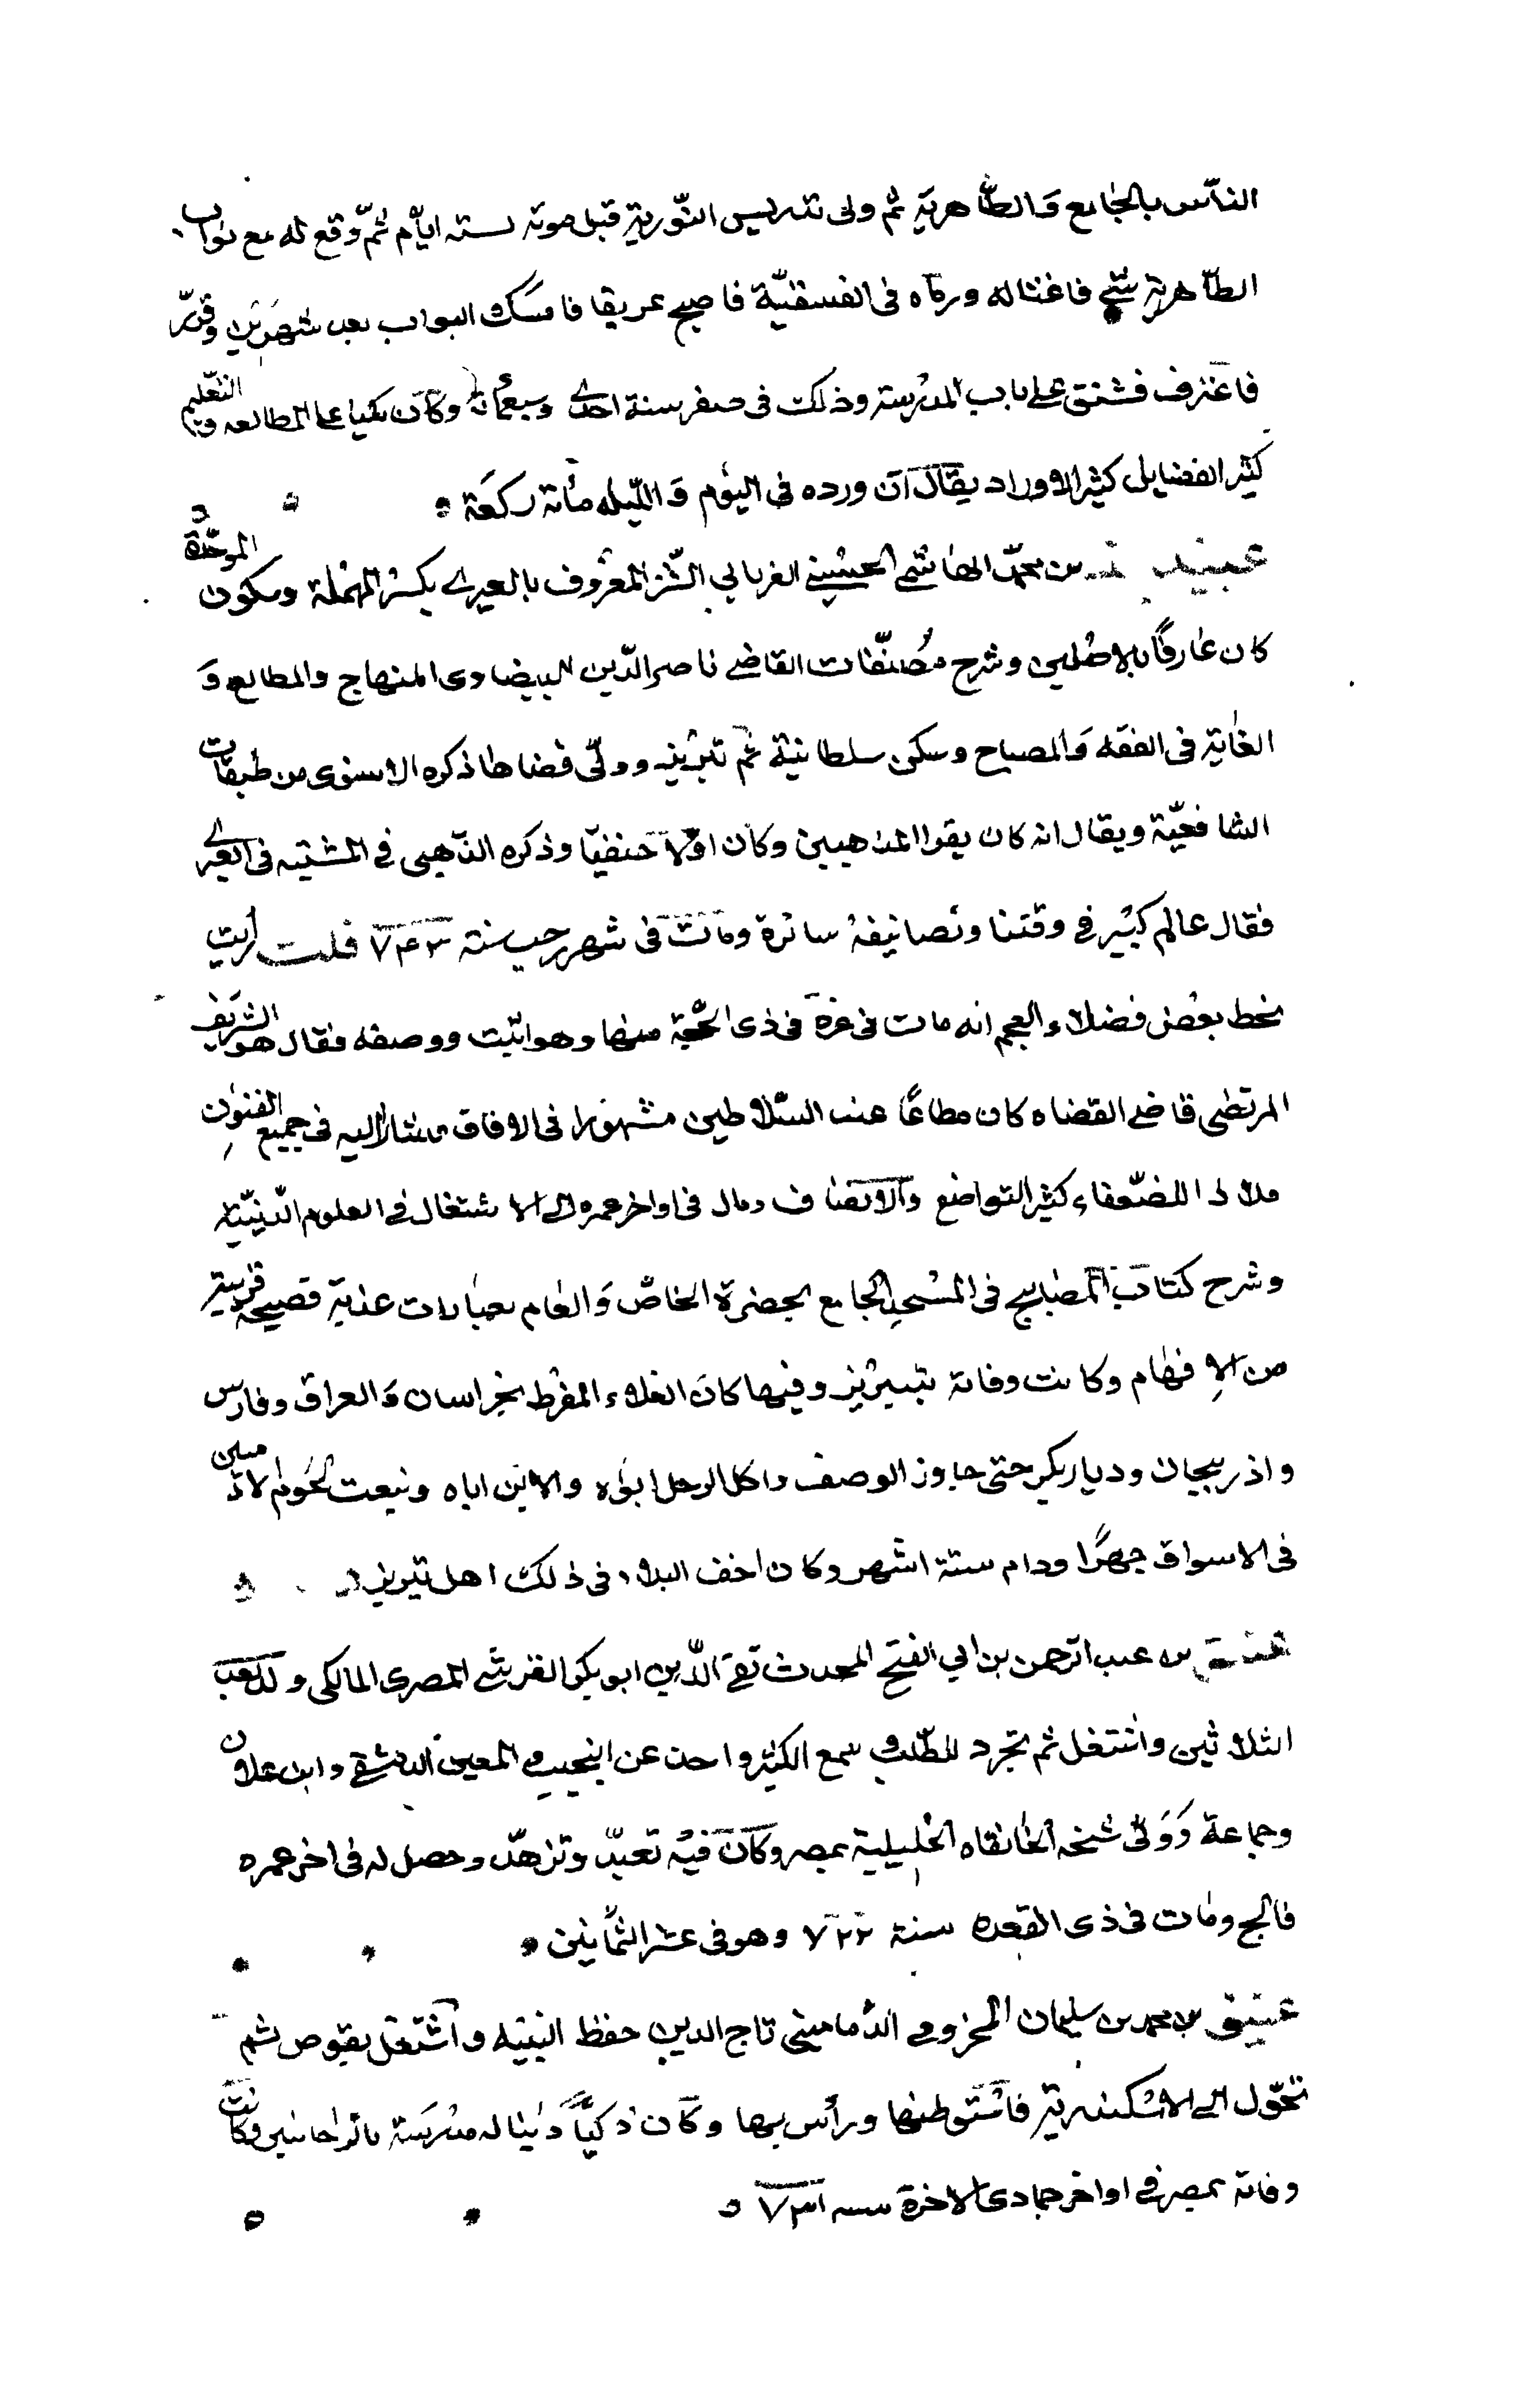 الناس بالجامع والظاهرية ثم ولى تدريس النورية قبل موته بستة ايام ثم وقع له مع بواب
الظاهرية شيء فاغتاله ورماه فى الفسقية فاصبح غريقا فامسك البواب بعد شهرين وقرر
فاعترف فشنق على باب المدرسة وذلك فى صفر سنة احدى وسبعمائة وكان مكبا على المطالعة والتعليم
كثير الفضايل كثير الاوراد يقال ان ورده فى اليوم والليلة مأئة ركعة
عبيد الله بن محمد الهاشمى الحسينى الفريابي الشريف المعروف بالعبرى بكسر المهملة وسكون الموحدة
كان عارفا بالاصلين وشرح مصنفات القاضى ناصر الدين البيضاوى المنهاج والمطالع و
الغاية فى الفقه والمصباح وسكن سلطانية ثم تبريز وولى قضاها ذكره الاسنوى من طبقات
الشافعية ويقال انه كان يقرا المذهبين وكان اولا حنفيا وذكره الذهبى فى المشتبه فى العبرى
فقال عالم كبير فى وقتنا وتصانيفه سائرة ومات فى شهر رجب سنة ٧٤٣ قلت رايت
بخط بعض فضلاء العجم انه مات فى غرة فى ذى الحجة منها وهو اثبت ووصفه فقال هو الشريف
المرتضى قاضى القضاه كان مطاعا عند السلاطين مشهورا فى الافاق مشارا اليه فى جميع الفنون
ملاذا للضعفاء كثير التواضع والانصاف ومال فى اواخر عمره الى الاشتغال فى العلوم الدينية
وشرح كتاب المصابيح فى المسجد الجامع بحضرة الخاص والعام بعبارات عذبة فصيحة قريبة
من الافهام وكانت وفاته بتبريز وفيها كان الغلاء المفرط بخراسان والعراق وفارس
واذربيجان وديار بكر حتى جاوز الوصف واكل الرجل ابواه والابن اباه وبيعت لحوم الادميين
فى الاسواق جهرا ودام ستة اشهر وكان اخف البلاد فى ذلك اهل تبريز
عتيق بن عبد الرحمن بن ابي الفتح المحدث تقى الدين ابو بكر القرشى المصرى المالكى ولد بعد
الثلاثين واشتغل ثم تجرد للطلب وسمع الكثير واخذ عن النجيب والمعين الدمشقى وابن علان
وجماعة وولى شيخه الخانقاه الخليلية بمصر وكان فيه تعبد وتزهد وحصل له فى اخر عمره
فالج ومات فى ذى القعدة سنة ٧٢٢ وهو فى عشر الثمانين
عتيق بن محمد بن سليمان المخزومى الدمامينى تاج الدين حفظ التنبيه واشتغل بقوص ثم
تحول الى الاسكندرية فاستوطنها ورأس بها وكان ذكيا دينا له مدرسة بالمرجانيين وكانت
وفاته بمصر فى اواخر جمادى الاخرة سنه ٧٣١